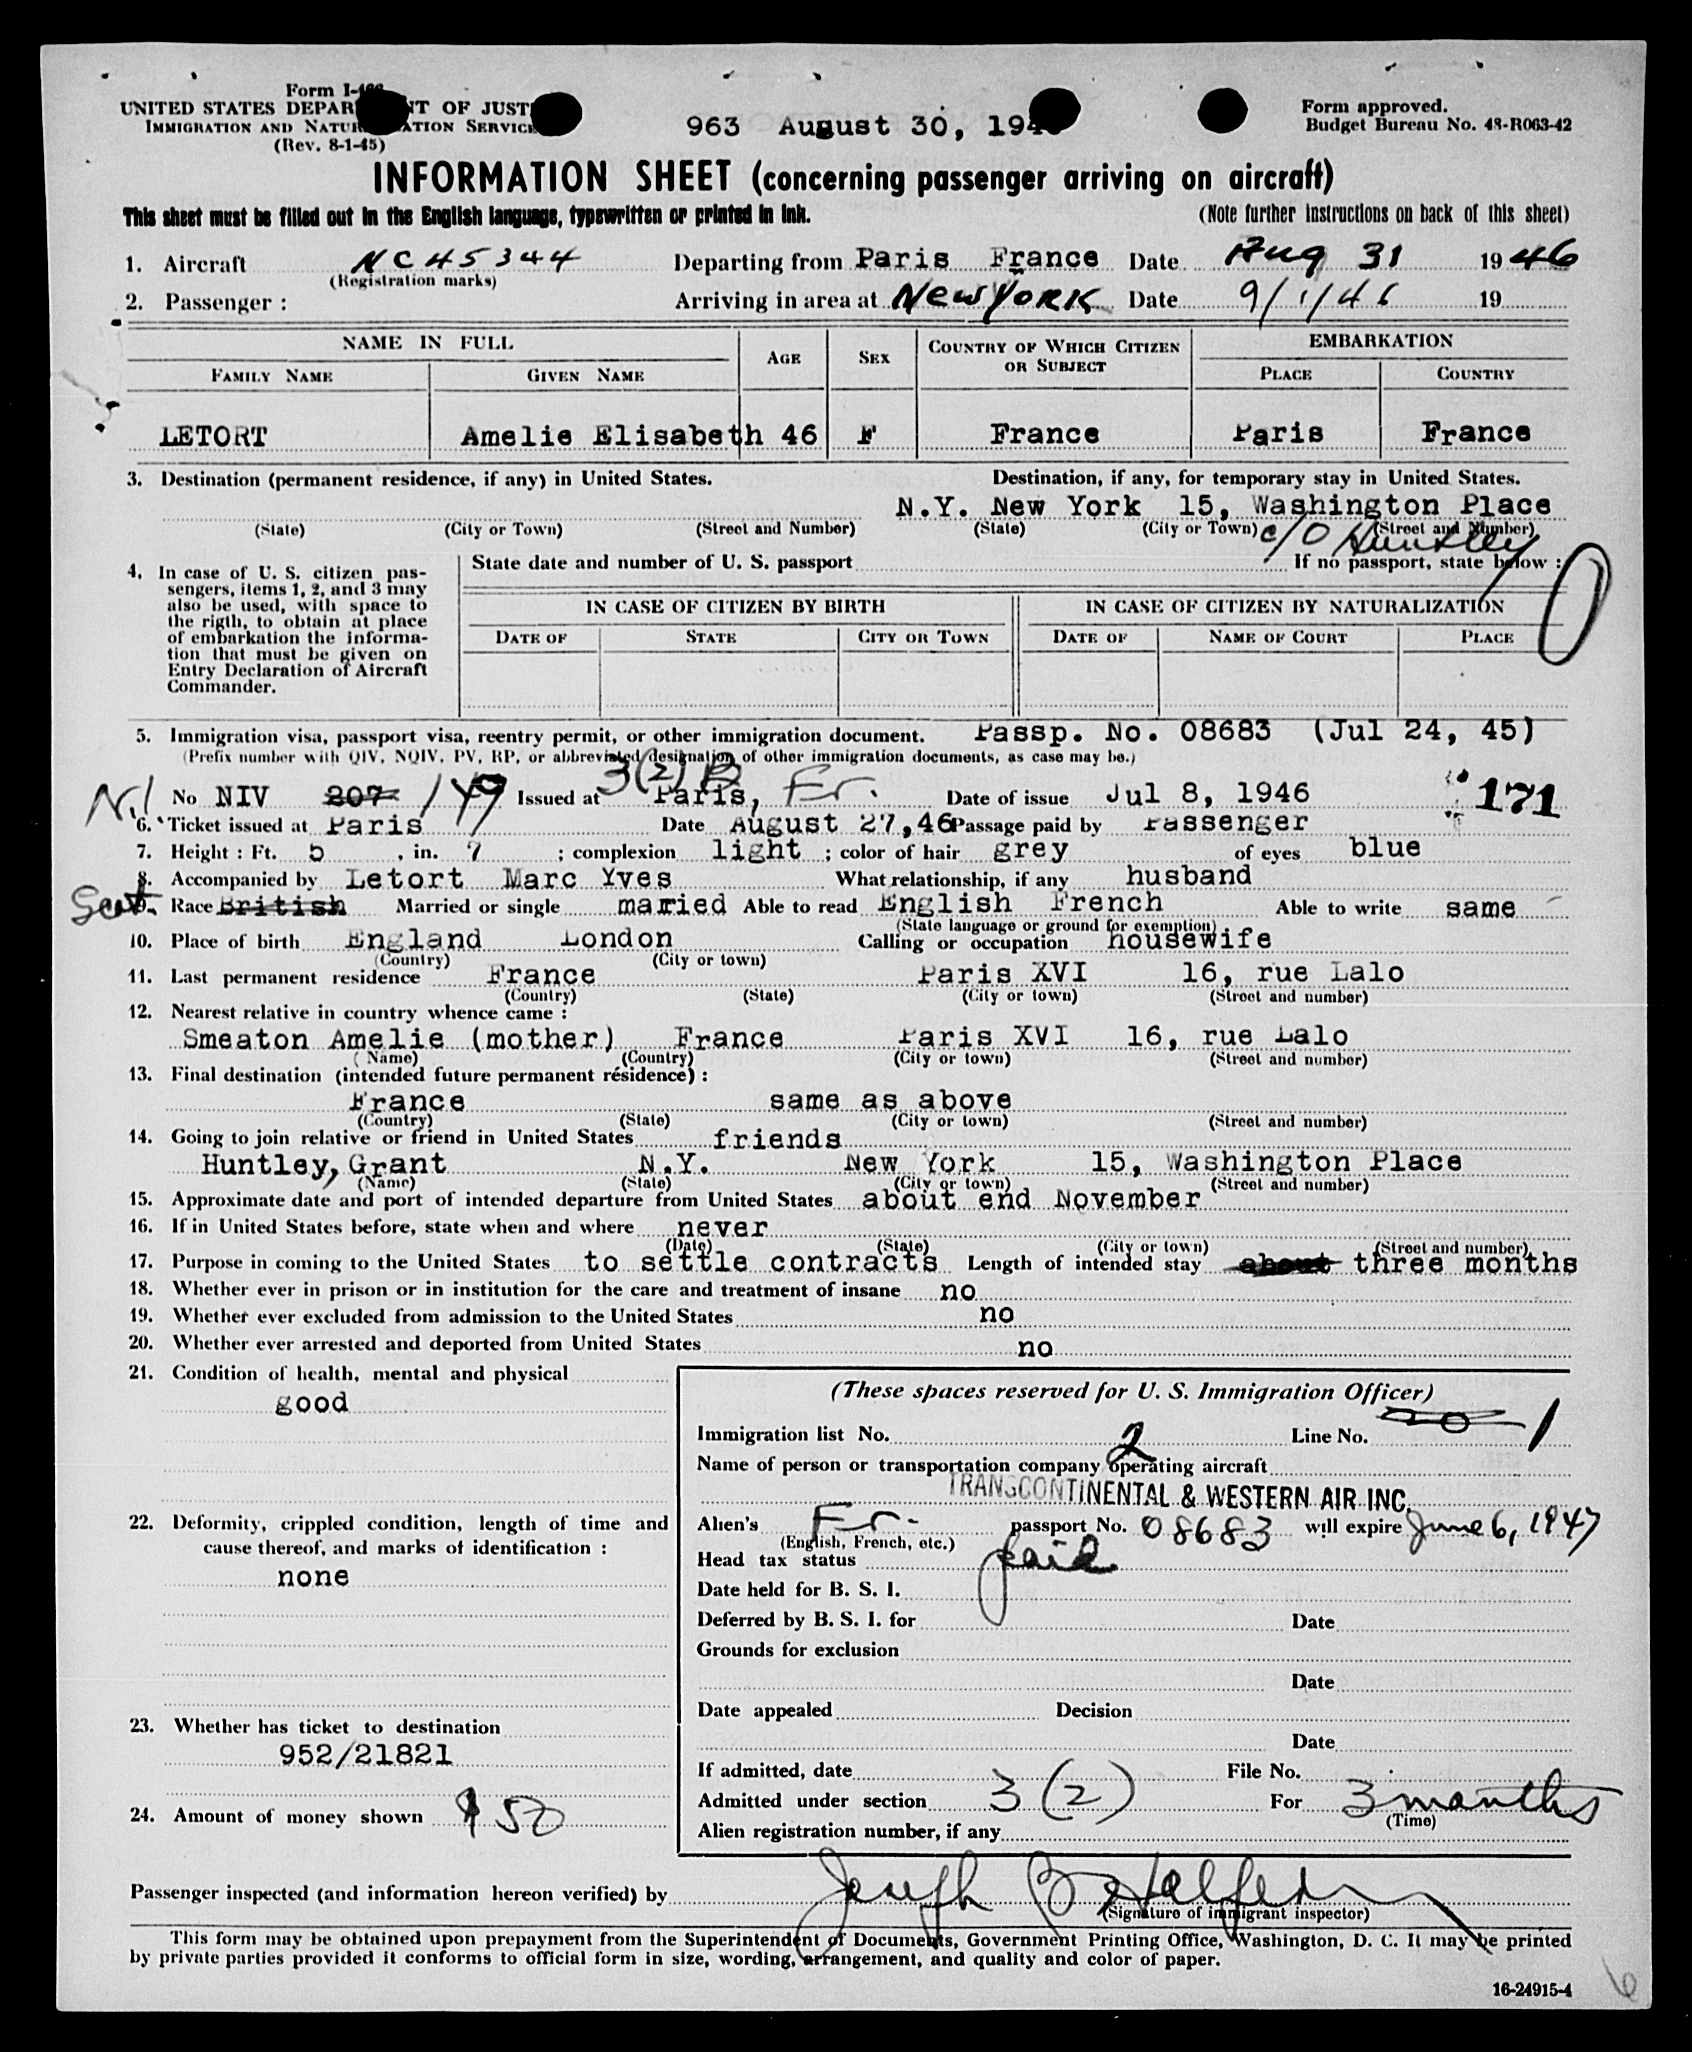 Form I-466
UNITED STATES DEPAR T OF JUST
IMMIGRATION AND NATUR ATION SERVICE
(Rev. 8-1-45)
963 August 30, 194
Form approved.
Budget Bureau No. 43-R063-42
INFORMATION SHEET (concerning passenger arriving on aircraft)
This sheet must be filled out in the English language, typewritten or printed in ink.
(Note further instructions on back of this sheet)
1. Aircraft NC45344 Departing from Paris France Date Aug 31 1946
(Registration marks)
2. Passenger : Arriving in area at New York Date 9/1/46 19
NAME IN FULL
AGE SEX COUNTRY OF WHICH CITIZEN OR SUBJECT EMBARKATION
FAMILY NAME GIVEN NAME PLACE COUNTRY
LETORT Amelie Elisabeth 46 F France Paris France
3. Destination (permanent residence, if any) in United States. Destination, if any, for temporary stay in United States.
N.Y. New York 15, Washington Place
(State) (City or Town) (Street and Number) (State) (City or Town) (Street and Number)
c/o Huntley
4. In case of U. S. citizen passengers, items 1, 2, and 3 may
also be used, with space to
the rigth, to obtain at place
of embarkation the informa-
tion that must be given on
Entry Declaration of Aircraft
Commander.
State date and number of U. S. passport If no passport, state below :
0
IN CASE OF CITIZEN BY BIRTH IN CASE OF CITIZEN BY NATURALIZATION
DATE OF STATE CITY OR TOWN DATE OF NAME OF COURT PLACE
5. Immigration visa, passport visa, reentry permit, or other immigration document. Passp. No. 08683 (Jul 24, 45)
(Prefix number with QIV, NQIV, PV, RP, or abbreviated designation of other immigration documents, as case may be.)
3(2) B
No NIV 207 149 Issued at Paris, Fr. Date of issue Jul 8, 1946 171
6. Ticket issued at Paris Date August 27,46 Passage paid by Passenger
7. Height : Ft. 5 , in. 7 ; complexion light ; color of hair grey of eyes blue
8. Accompanied by Letort Marc Yves What relationship, if any husband
Scot.
9. Race British Married or single married Able to read English French Able to write same
(State language or ground for exemption)
10. Place of birth England London Calling or occupation housewife
(Country) (City or town)
11. Last permanent residence France Paris XVI 16, rue Lalo
(Country) (State) (City or town) (Street and number)
12. Nearest relative in country whence came :
Smeaton Amelie (mother) France Paris XVI 16, rue Lalo
(Name) (Country) (City or town) (Street and number)
13. Final destination (intended future permanent résidence) :
France same as above
(Country) (State) (City or town) (Street and number)
14. Going to join relative or friend in United States friends
Huntley, Grant N.Y. New York 15, Washington Place
(Name) (State) (City or town) (Street and number)
15. Approximate date and port of intended departure from United States about end November
16. If in United States before, state when and where never
(Date) (State) (City or town) (Street and number)
17. Purpose in coming to the United States to settle contracts Length of intended stay about three months
18. Whether ever in prison or in institution for the care and treatment of insane no
19. Whether ever excluded from admission to the United States no
20. Whether ever arrested and deported from United States no
21. Condition of health, mental and physical
good
22. Deformity, crippled condition, length of time and
cause thereof, and marks of identification :
none
23. Whether has ticket to destination
952/21821
24. Amount of money shown $50
(These spaces reserved for U. S. Immigration Officer)
Immigration list No. 2 Line No. 1
Name of person or transportation company operating aircraft
TRANSCONTINENTAL & WESTERN AIR INC.
Alien's Fr. passport No. 08683 will expire June 6, 1947
(English, French, etc.)
Head tax status paid
Date held for B. S. I.
Deferred by B. S. I. for Date
Grounds for exclusion
Date
Date appealed Decision
Date
If admitted, date File No.
Admitted under section 3(2) For 3 months
(Time)
Alien registration number, if any
Passenger inspected (and information hereon verified) by Joseph B
(Signature of immigrant inspector)
This form may be obtained upon prepayment from the Superintendent of Documents, Government Printing Office, Washington, D. C. It may be printed
by private parties provided it conforms to official form in size, wording, arrangement, and quality and color of paper.
16-24915-4
6